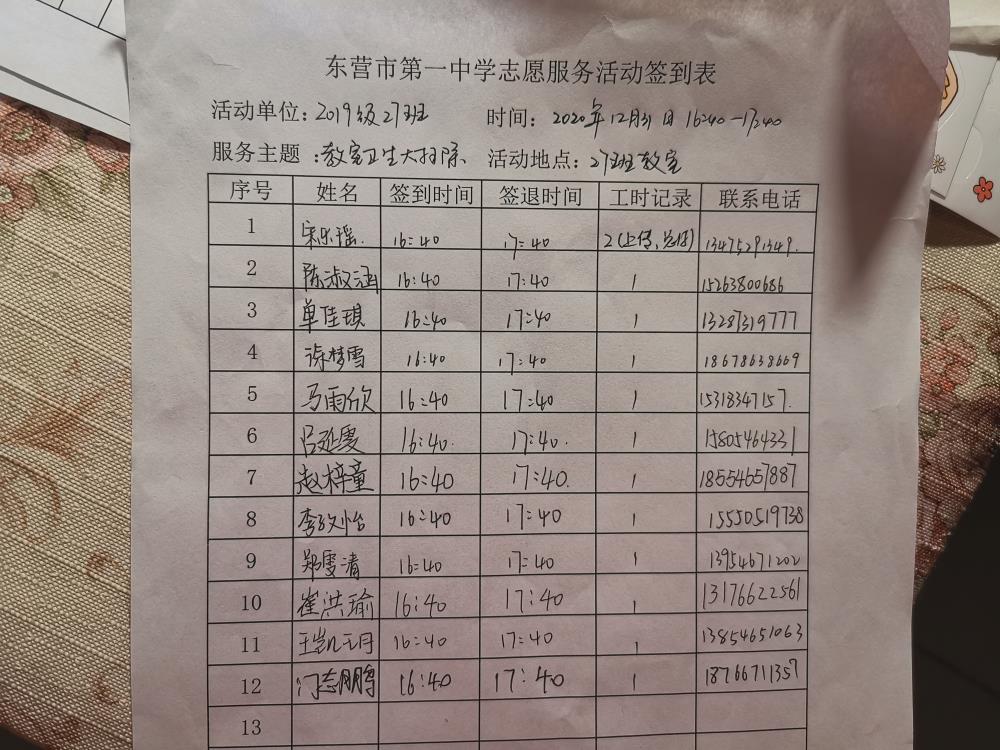 东营市第一中学志愿服务活动签到表
活动单位：2019级27班 时间：2020年12月31日 16:40-17:40
服务主题：教室卫生大扫除 活动地点：27班教室
序号 姓名 签到时间 签退时间 工时记录 联系电话
1 宋乐瑶. 16:40 17:40 2(上传,总结) 13475291349.
2 陈淑涵 16:40 17:40 1 15263800686
3 单佳琪 16:40 17:40 1 13287319777
4 徐梦雪 16:40 17:40 1 18678638669
5 马雨欣 16:40 17:40 1 15318347157.
6 吕延雯 16:40. 17:40. 1 15805464331
7 赵梓童 16:40 17:40. 1 18554657887
8 李玟怡 16:40 17:40 1 15550519738
9 郑雯清 16:40 17:40 1 13954671202
10 崔洪瑜 16:40 17:40 1 13176622561
11 王凯玥 16:40 17:40 1 13854651063
12 门志鹏 16:40 17:40 1 18766711357
13